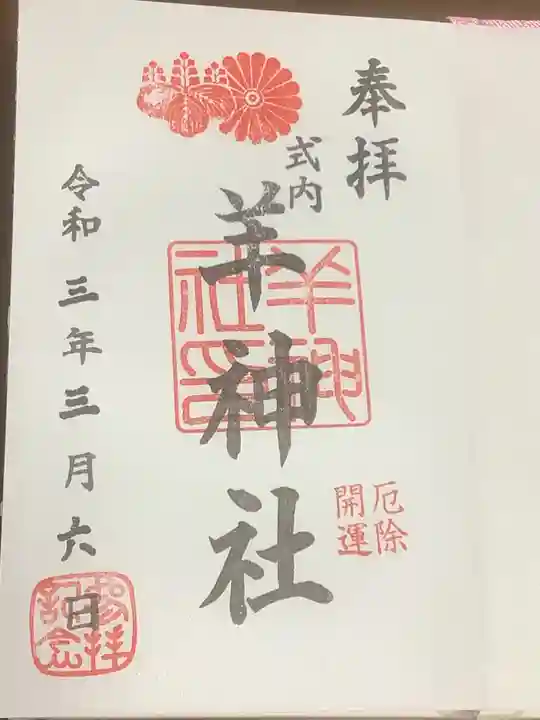 奉拝
式内
羊神社
羊神社印
厄除
開運
令和三年三月六日
参拝
記念